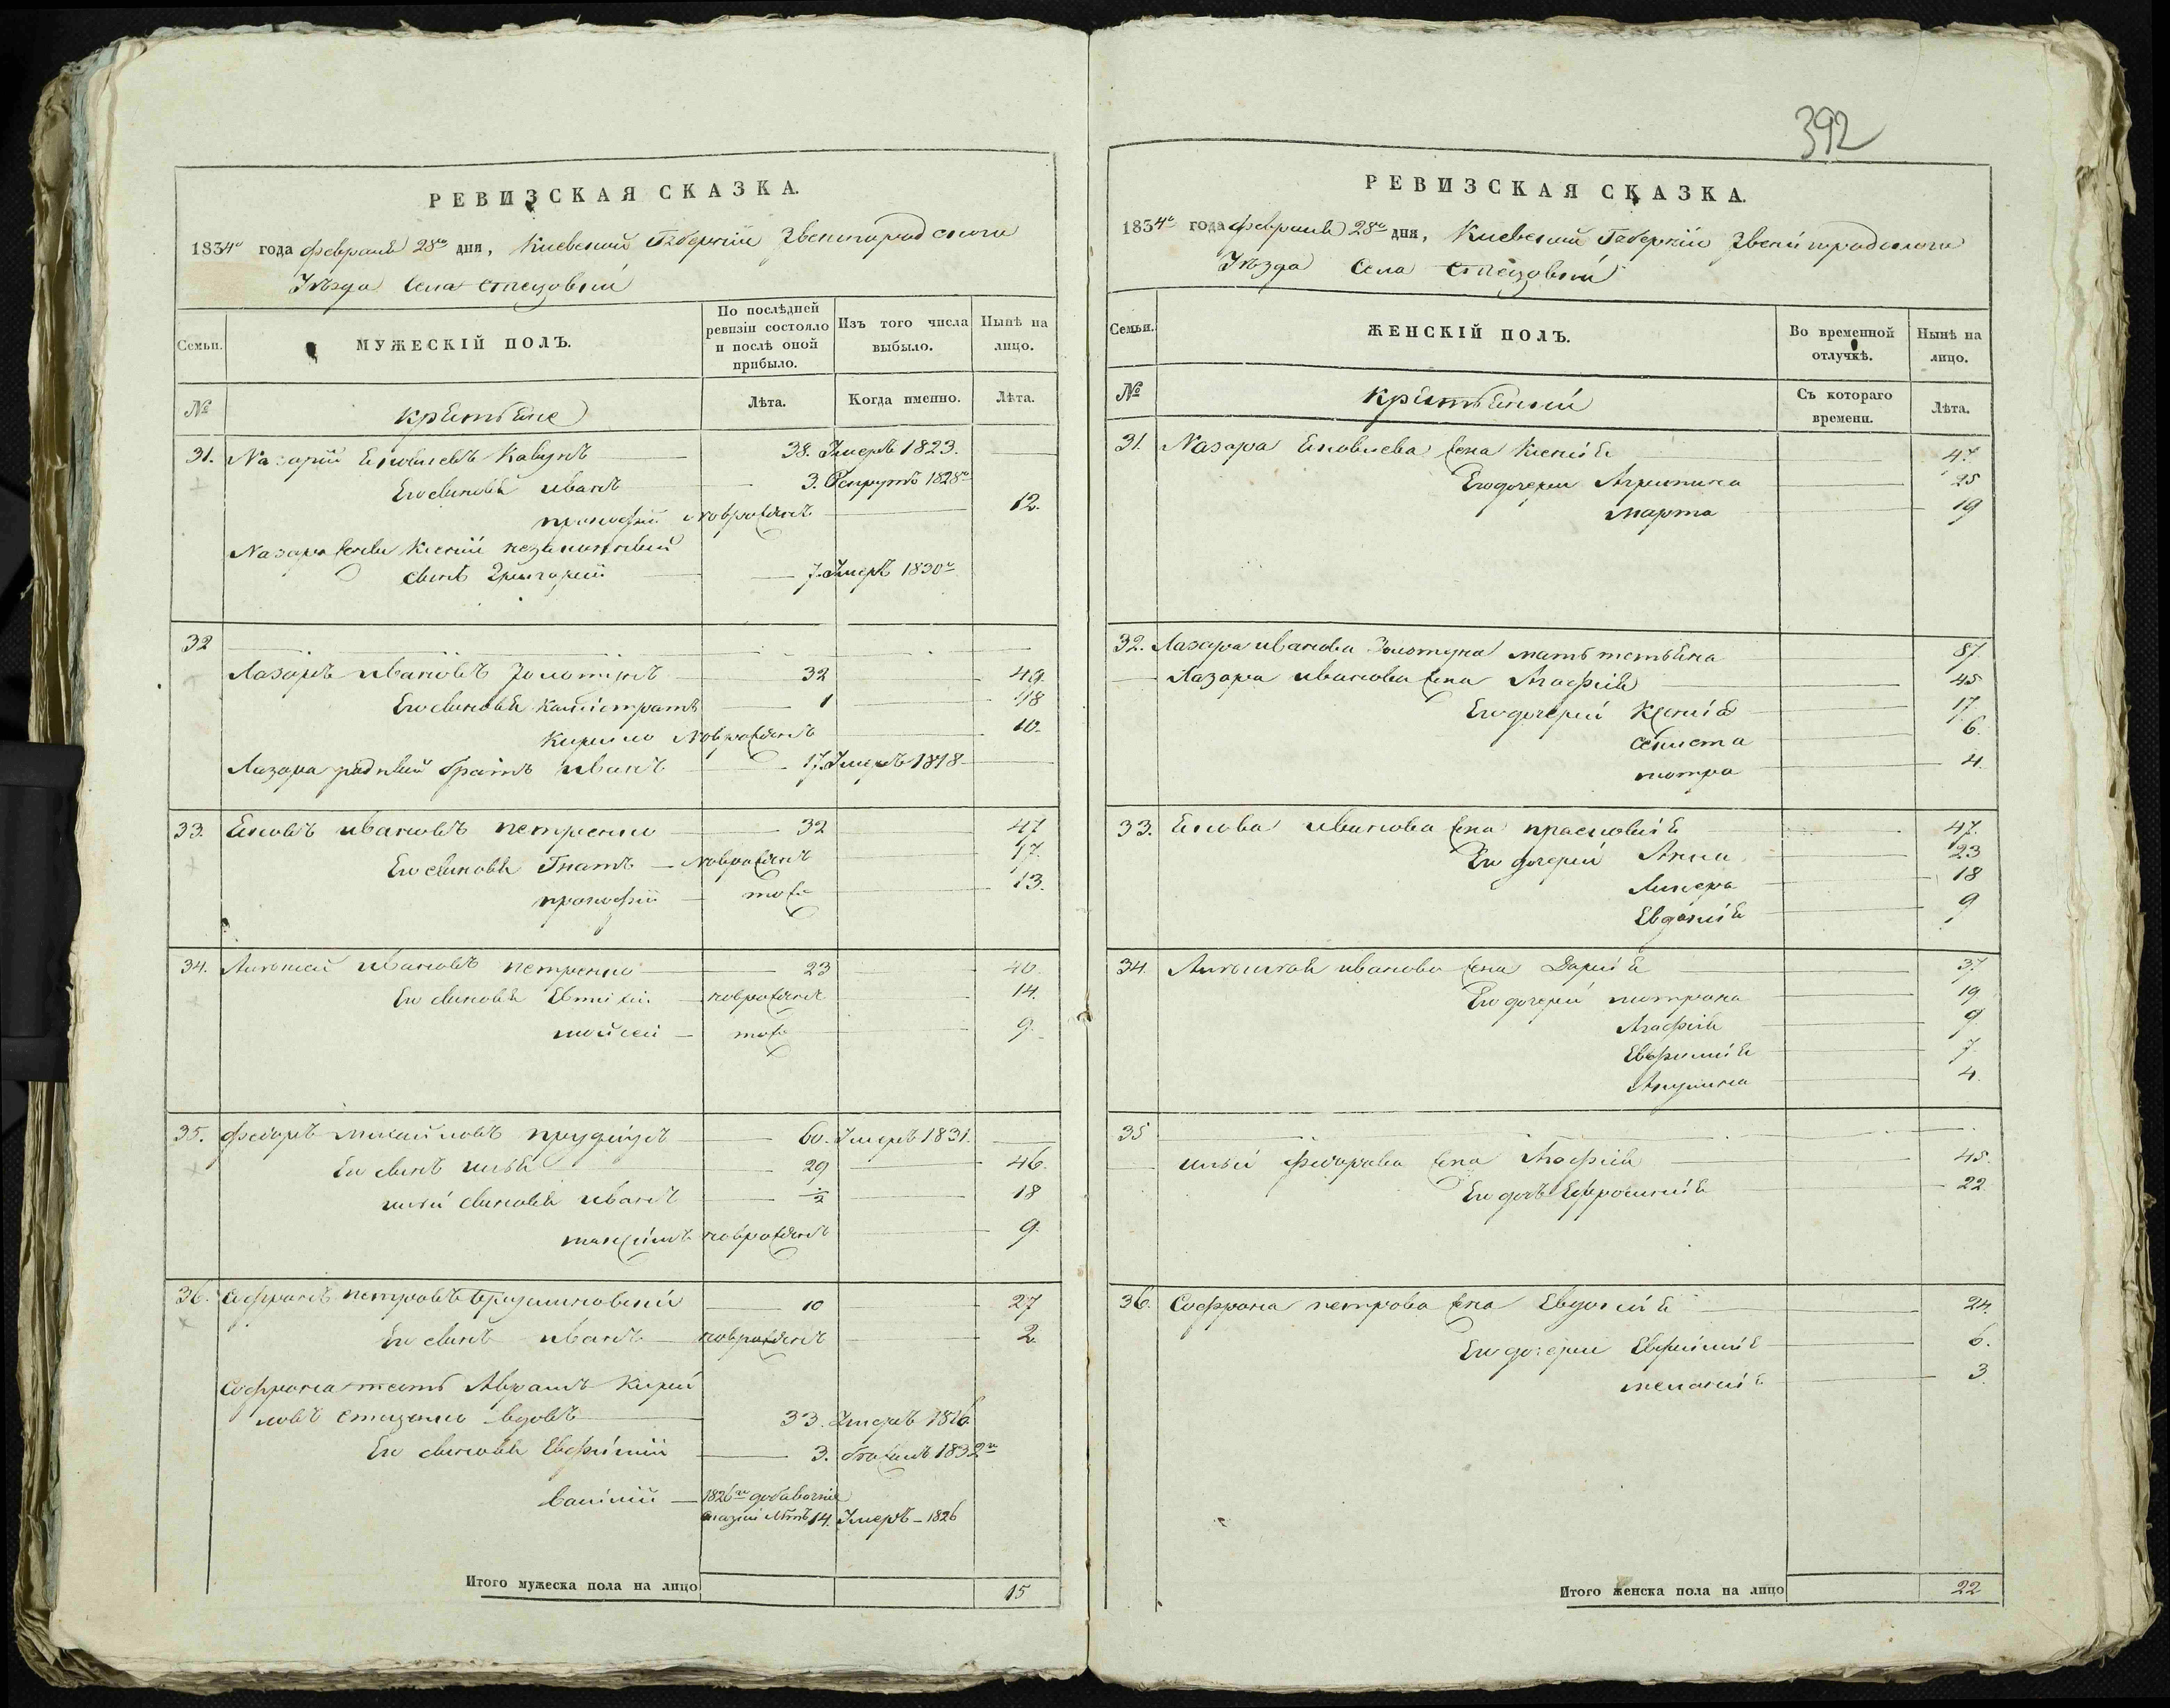 392
РЕВИЗСКАЯ СКАЗКА.
1834го года февраля 28го дня, Киевской Губернии Звенигородского
Уезда Села
Семьи.
МУЖЕСКІЙ ПОЛЪ.
По послѣдней ревизіи состояло и послѣ оной прибыло.
Изъ того числа выбыло.
Нынѣ на лицо.
№
Крестьяне
Лѣта.
Когда именно.
Лѣта.
31. Назарий Яковлевъ Кавунъ 38. Умеръ 1823.
Его сыновья Иванъ 3. Рекрутъ 1828го
прокофий Новорожденъ 12.
Назара жены Ксении незаконный
сынъ Григорий 7. Умеръ 1830го
32
Лазарь Ивановъ 32 49.
Его сыновья Калистратъ 1 18
Кирило Новорожденъ 10.
Лазара родный братъ Иванъ 17. Умеръ 1818
33. Яковъ Ивановъ петренко 32 47
Его сыновья Гнатъ Новорожденъ 17.
прокофий тоже 13.
34. Ивановъ петренко 23 40.
Его сыновья Евтихий новорожденъ 14.
мойсей тоже 9.
35. Федоръ михайловъ 60. Умеръ 1831.
Его сынъ илья 29 46.
ильи сыновья Иванъ ½ 18
максимъ новорожденъ 9.
36. Софронъ петровъ 10 27
Его сынъ Иванъ новорожденъ 2
Софрона тесть Аврамъ Кирил
ловъ стеценко вдовъ 33. Умеръ 1826
Его сыновья Евфимий 3. 1832го
Василий 1826го добавочная
сказки летъ 14. Умеръ - 1826
Итого мужеска пола на лицо 15
РЕВИЗСКАЯ СКАЗКА.
1834го года февраля 28го дня, Киевской Губернии Звенигородского
Уезда Села
Семьи.
ЖЕНСКІЙ ПОЛЪ.
Во временной отлучкѣ.
Нынѣ на лицо.
№
Съ котораго времени.
Лѣта.
31. Назара Яковлева жена Ксения 47.
Его дочери Агрипина 25
Марта 19
32. Лазара Иванова мать татьяна 87.
Лазара Иванова жена Агафия 45
Его дочери Ксения 17.
6.
мотра 4.
33. Якова Иванова жена прасковия 47.
Его дочери Анна 23
18
Евдокия 9
34. Иванова жена Дария 37
Его дочери мотрона 19
Агафия 9
Евфимия 7.
4.
35
ильи Федорова жена Агафия 45.
Его дочь Ефросиния 22
36. Софрона петрова жена Евдокия 24.
Его дочери Евфимия 6.
мелания 3.
Итого женска пола на лицо 22